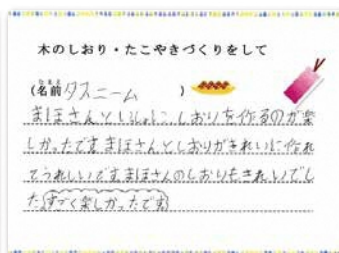 木のしおり・たこやきづくりをして
なまえ
(名前 タスニーム )
まほさんといっしょに しおりを作るのが楽
しかったですまほさんとしおりがきれいに作れ
てうれしいですまほさんのしおりもきれいでし
たすごく楽しかったです